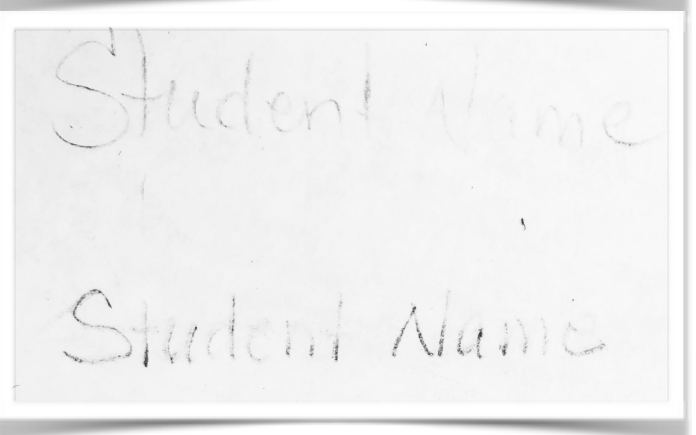 Student Name
Student Name